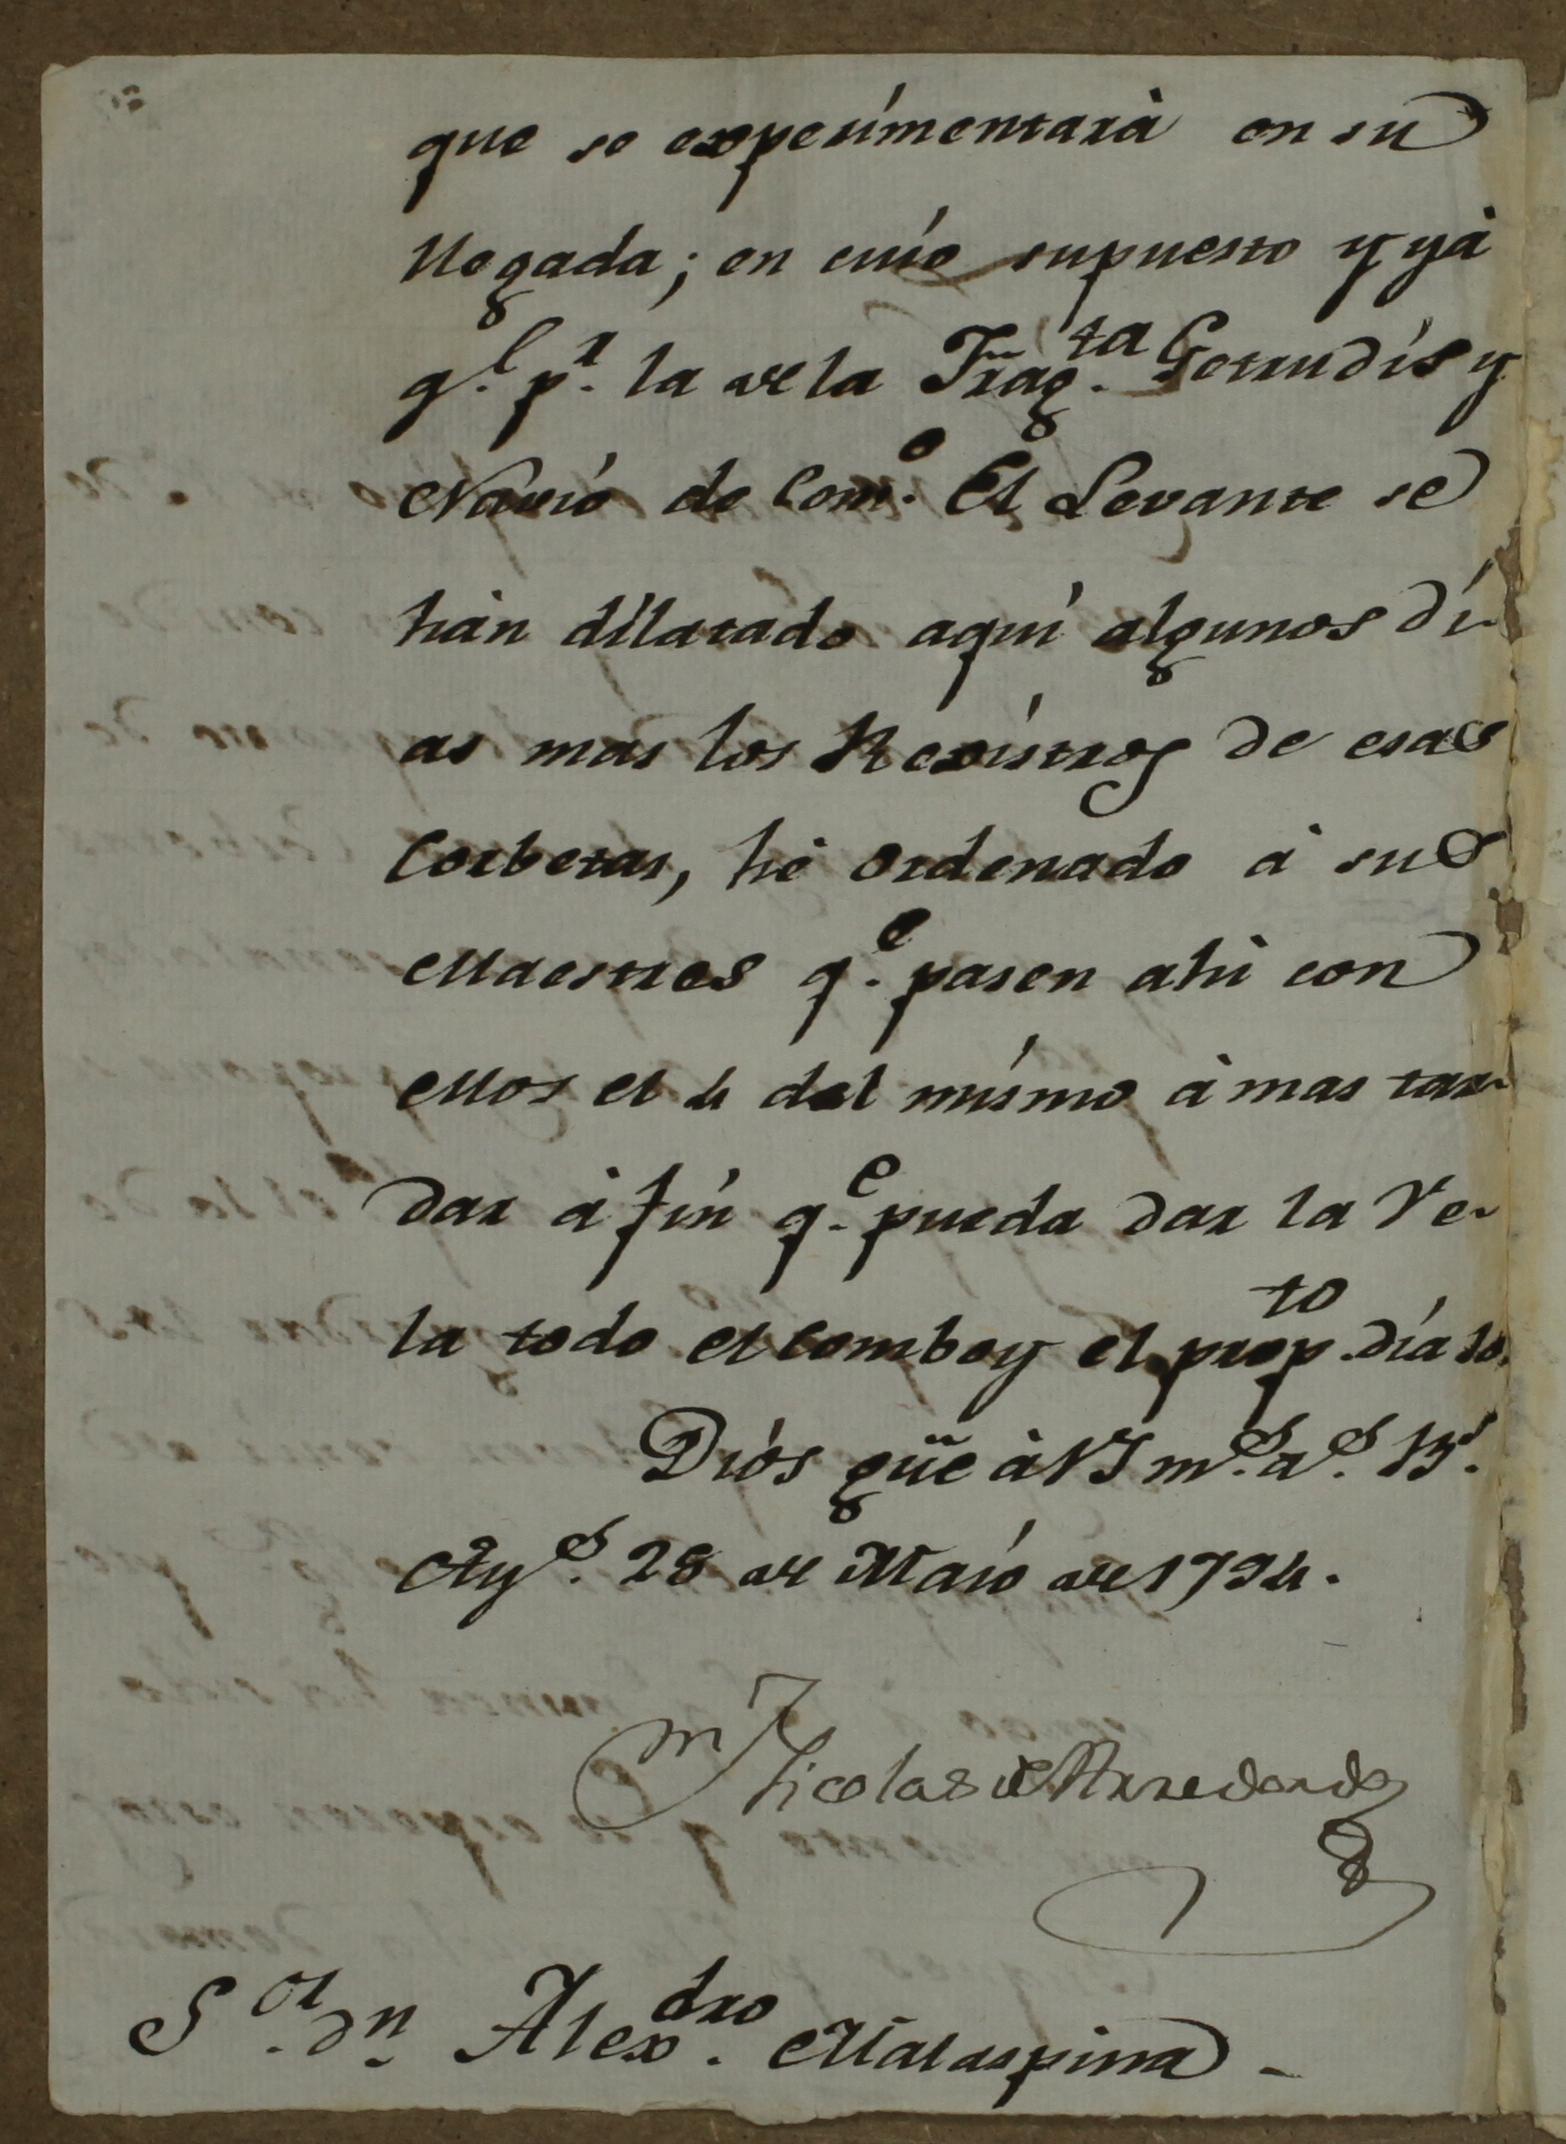 que se experimentarà en su
llegada; en cuio supuesto y yà
q.l p.r la de la Frag.ta Getrudis y
Navio de Com.o El Levante se
hàn dilatado aqui algunos di-
as mas los Rexistros de esas
Corbetas, hè ordenado à sus
Maestres q.e pasen ahi con
ellos el 4 del mismo à mas tar-
dar à fin q.e pueda dar la Ve-
la todo el comboy el prop.to dia 10.
Dios güe à VS m.s a.s B.s
Ay.s 28 de Maio de 1794.
Nicolas de Arredondo
S.or d.n Alex.dro Malaspina -